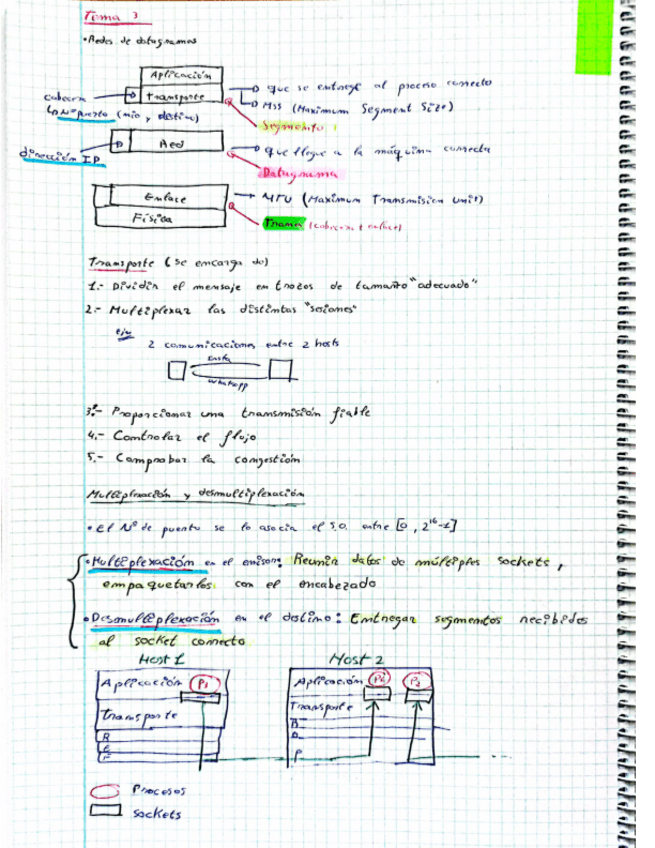 Tema 3
• Redes de datagramas
Aplicación
Transporte
cabecera
↳ Nº puerto (mío y destino)
→ que se entregue al proceso correcto
↳ MSS (Maximum Segment Size)
Segmento
Red
dirección IP
→ que llegue a la máquina correcta
Datagrama
Enlace
Física
→ MTU (Maximum Transmision Unit)
Trama (cabecera + enlace)
Transporte (se encarga de)
1.- Dividir el mensaje en trozos de tamaño "adecuado"
2.- Multiplexar las distintas "sesiones"
ejm
2 comunicaciones entre 2 hosts
insta
whatsapp
3.- Proporcionar una transmisión fiable
4.- Controlar el flujo
5.- Comprobar la congestión
Multiplexación y desmultiplexación
• El Nº de puerto se lo asocia el S.O. entre [0, 2^16-1]
• Multiplexación en el emisor: Reunir datos de múltiples sockets,
empaquetarlos con el encabezado
• Desmultiplexación en el destino: Entregar segmentos recibidos
al socket correcto
Host 1
Aplicación P1
Transporte
R
E
F
Host 2
Aplicación P2
Transporte
R
F
Procesos
Sockets